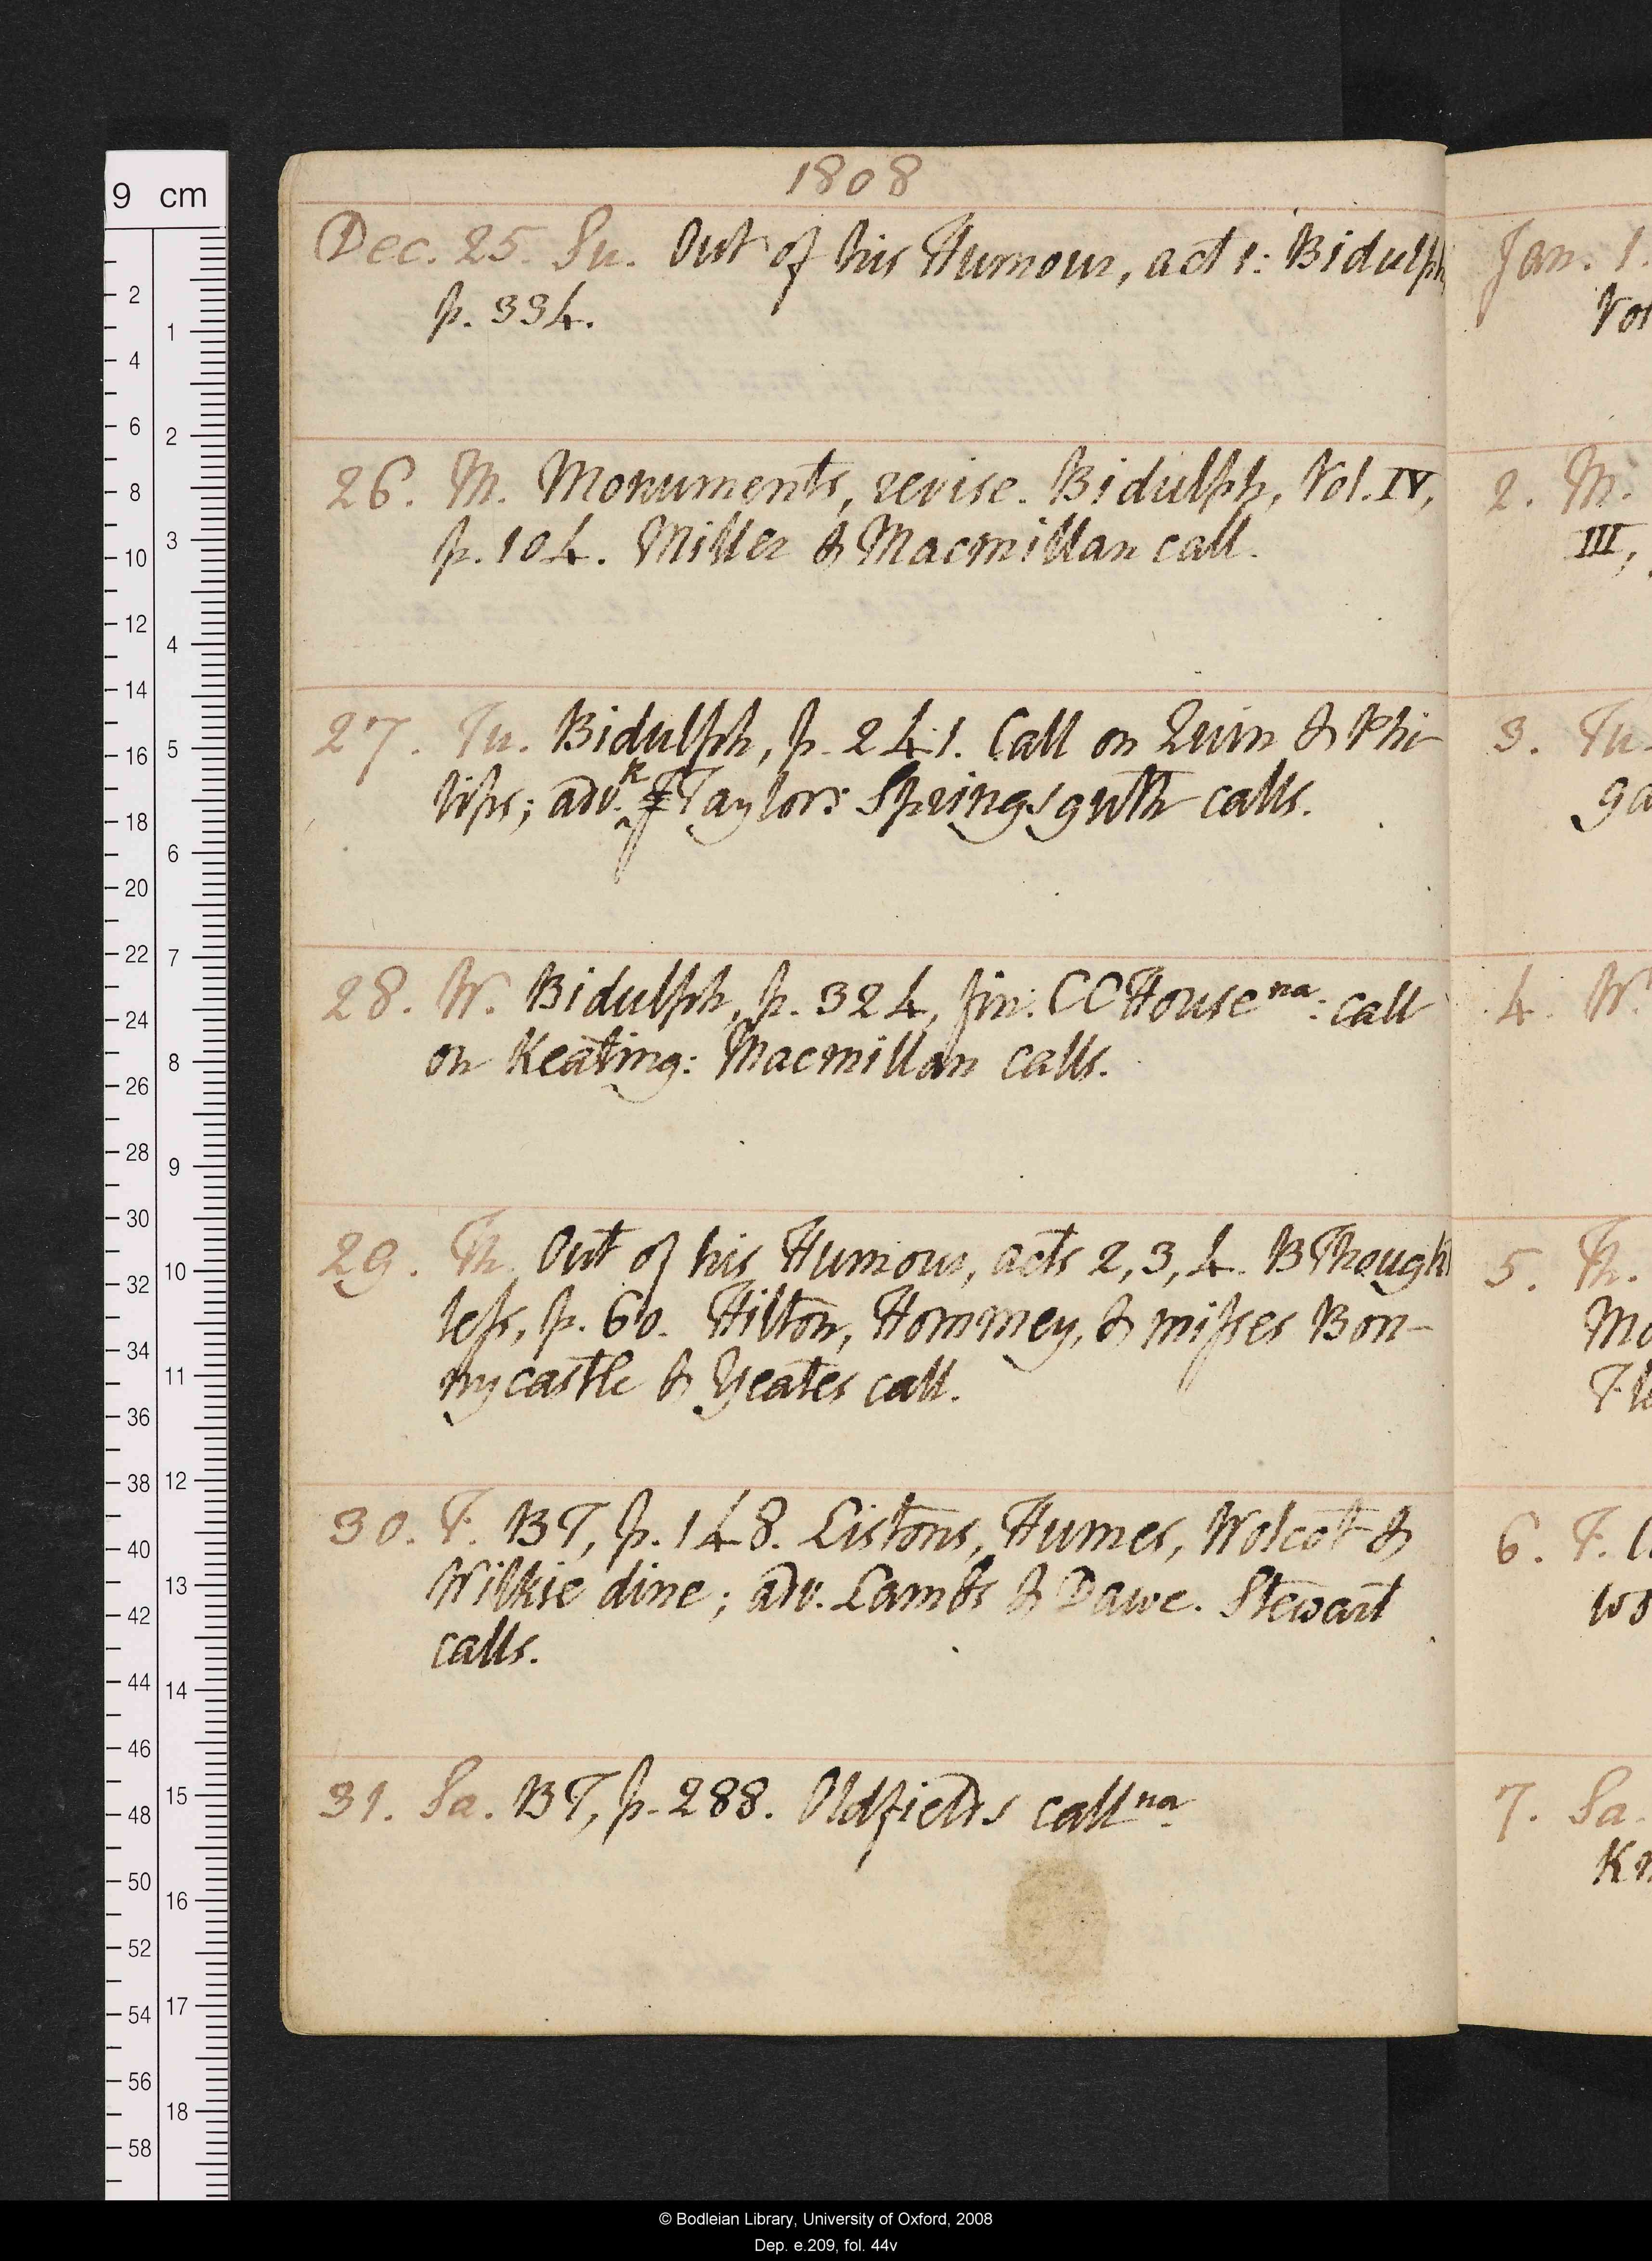 1808
Dec. 25. Su. Out of his Humour, act 1: Bidulph,
p. 334.
26. M. Monuments, revise. Bidulph, Vol. IV,
p. 104. Miller & Macmillan call.
27. Tu. Bidulph, p. 241. Call on Quin & Phi-
lips; adv. K Taylor: Springsguth calls.
28. W. Bidulph, p. 324, fin. CCHouse na: call
on Keating: Macmillan calls.
29. Th. Out of his Humour, acts 2, 3, 4. BThought
less, p. 60. Hilton, Hommey, & misses Bon-
nycastle & Yeates call.
30. F. BT, p. 148. Listons, Humes, Wolcot &
Wilkie dine; adv. Lambs & Dawe. Stewart
calls.
31. Sa. BT, p. 288. Oldfields call na.
Jan. 1.
Vol
2. M.
III,
3. Tu.
ga
4. W.
5. Th.
Mo
6. F.
7. Sa.
Kn
9 cm
2
4
6
8
10
12
14
16
18
20
22
24
26
28
30
32
34
36
38
40
42
44
46
48
50
52
54
56
58
1
2
3
4
5
6
7
8
9
10
11
12
13
14
15
16
17
18
© Bodleian Library, University of Oxford, 2008
Dep. e.209, fol. 44v